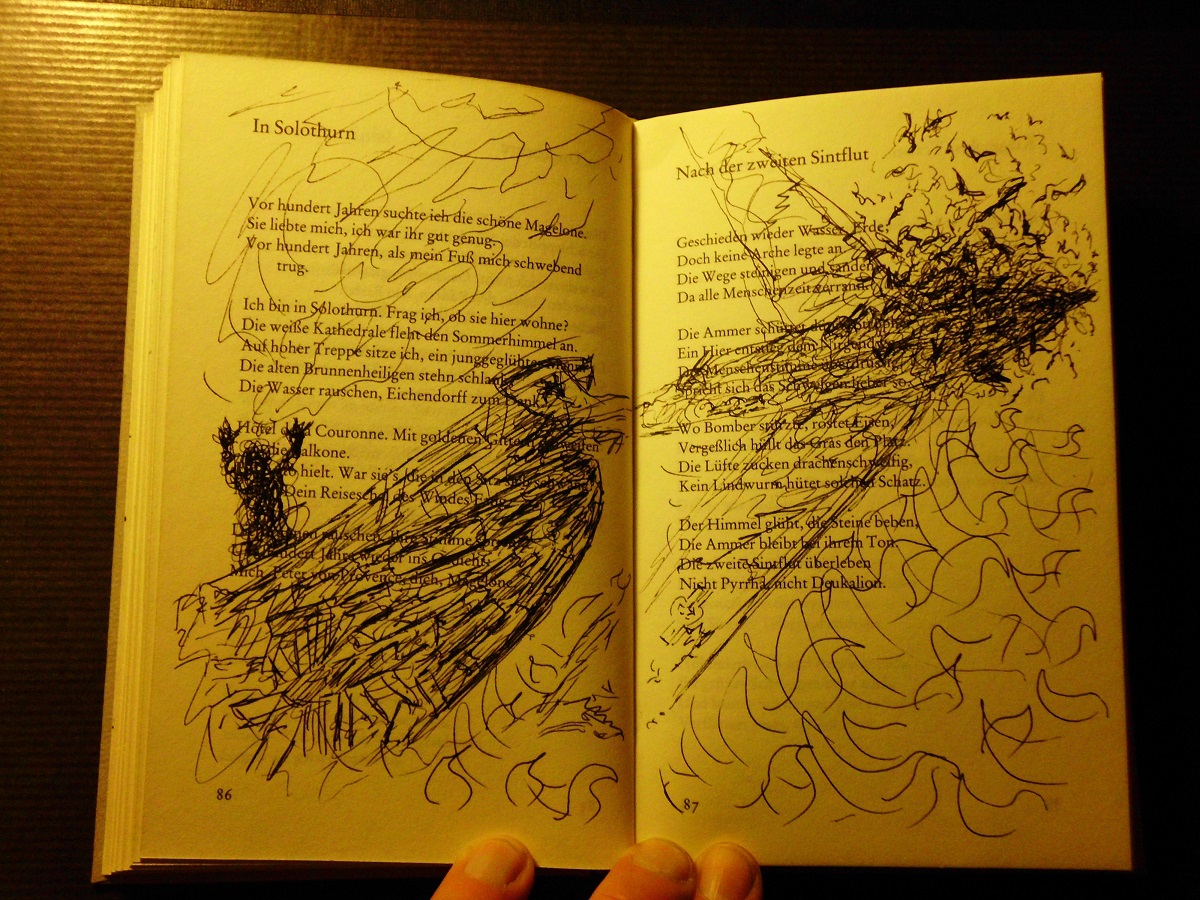 In Solothurn
Vor hundert Jahren suchte ich die schöne Magelone.
Sie liebte mich, ich war ihr gut genug.
Vor hundert Jahren, als mein Fuß mich schwebend
trug.
Ich bin in Solothurn. Frag ich, ob sie hier wohne?
Die weiße Kathedrale fleht den Sommerhimmel an.
Auf hoher Treppe sitze ich, ein junggeglühter
Die alten Brunnenheiligen stehn schlank
Die Wasser rauschen, Eichendorff zum
Hôtel de la Couronne. Mit goldenen Gittern
die Balkone.
hielt. War sie's, die in den
Dein Reiseschal des Windes
rauschen. Ihre Stimme
hundert Jahre wieder ins Gedicht:
Mich, Peter von Provence, dich, Magelone.
86
Nach der zweiten Sintflut
Geschieden wieder Wasser, Erde,
Doch keine Arche legte an.
Die Wege steinigen und sanden,
Da alle Menschenzeit verrann.
Die Ammer schüttet
Ein Hier entstieg dem Nirgendwo.
Der Menschenstimme überdrüssig
Spricht sich das Schweigen lieber so.
Wo Bomber stürzte, rostet Eisen,
Vergeßlich hüllt das Gras den Platz.
Die Lüfte zucken drachenschweifig,
Kein Lindwurm hütet solchen Schatz.
Der Himmel glüht, die Steine beben,
Die Ammer bleibt bei ihrem Ton.
Die zweite Sintflut überleben
Nicht Pyrrha, nicht Deukalion.
87